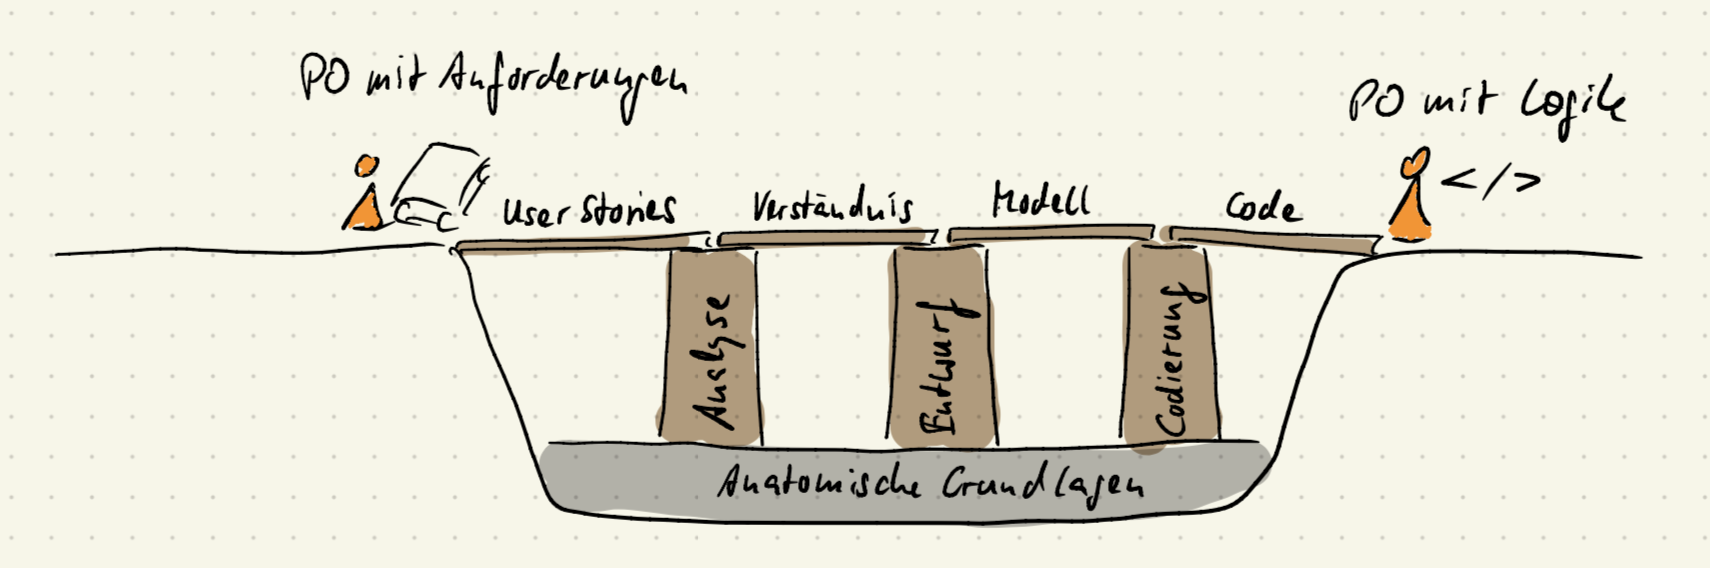 PO mit Anforderungen
PO mit Logik
</>
User Stories
Verständnis
Modell
Code
Analyse
Entwurf
Codierung
Anatomische Grundlagen